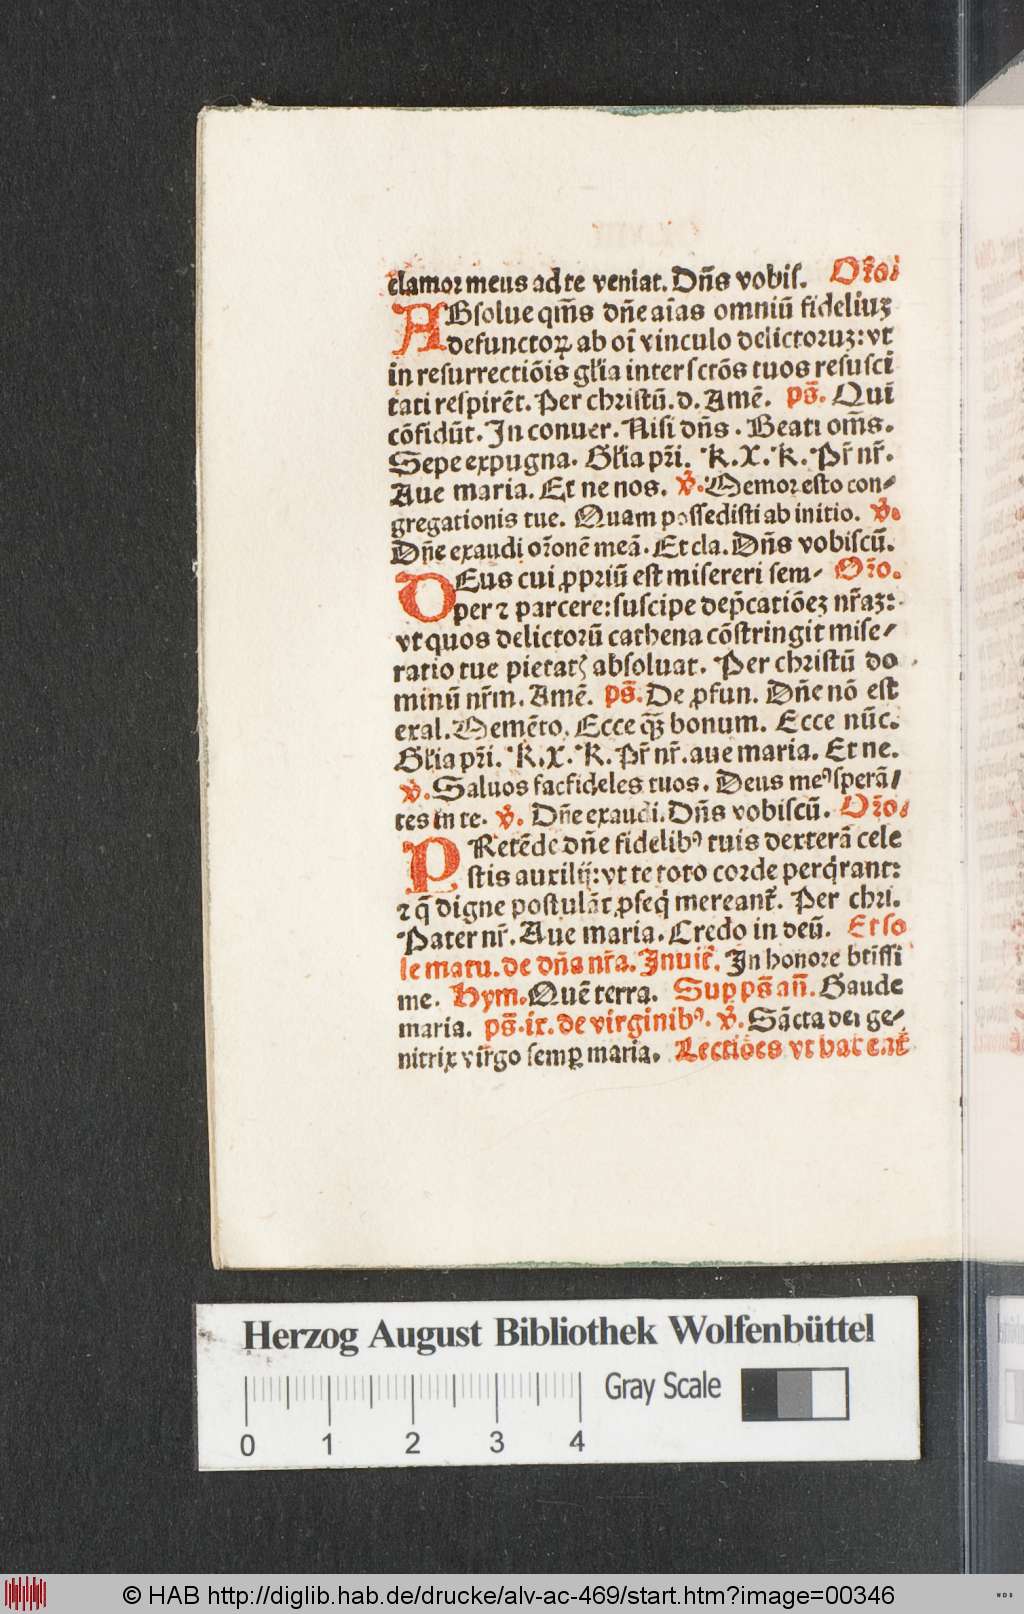 clamor meus ad te veniat. Dn̄s vobis. Or̄o.
ABsolue qm̄s dn̄e aīas omniū fideliuꝫ
defunctoꝝ ab oī vinculo delictoruꝫ: vt
in resurrectiōis gl̄ia inter sctōs tuos resusci
tati respirēt. Per christū. d. Amē. ps̄. Qui
cōfidūt. In conuer. Nisi dn̄s. Beati om̄s.
Sepe expugna. Gl̄ia pr̄i. K. X. K. Pr̄ nr̄.
Aue maria. Et ne nos. v̄. Memor esto con⸗
gregationis tue. Quam possedisti ab initio. v̄.
Dn̄e exaudi or̄onē meā. Et cla. Dn̄s vobiscū.
DEus cui ꝓpriū est misereri sem⸗ Or̄o.
per ⁊ parcere: suscipe dep̄catiōeꝫ nr̄aꝫ:
vt quos delictorū cathena cōstringit mise⸗
ratio tue pietatꝭ absoluat. Per christū do
minū nr̄m. Amē. ps̄. De ꝓfun. Dn̄e nō est
exal. Memēto. Ecce q̄ꝫ bonum. Ecce nūc.
Gl̄ia pr̄i. K. X. K. Pr̄ nr̄. aue maria. Et ne.
v̄. Saluos fac fideles tuos. Deus meꝰ sperā⸗
tes in te. v̄. Dn̄e exaudi. Dn̄s vobiscū. Or̄o.
PRetēde dn̄e fidelibꝰ tuis dexterā cele
stis auxilij: vt te toto corde perq̄rant:
⁊ q̄ digne postulāt ꝓseq̄ mereant̄. Per chri.
Pater nr̄. Aue maria. Credo in deū. Et so
le matu. de dn̄a nr̄a. Inuit̄. In honore btīssi
me. Hym. Quē terra. Sup ps̄ an̄. Gaude
maria. ps̄. ix. de virginibꝰ. v̄. Sācta dei ge⸗
nitrix virgo semꝑ maria. Lectiōes vt habent̄
Herzog August Bibliothek Wolfenbüttel
Gray Scale
0 1 2 3 4
© HAB http://diglib.hab.de/drucke/alv-ac-469/start.htm?image=00346